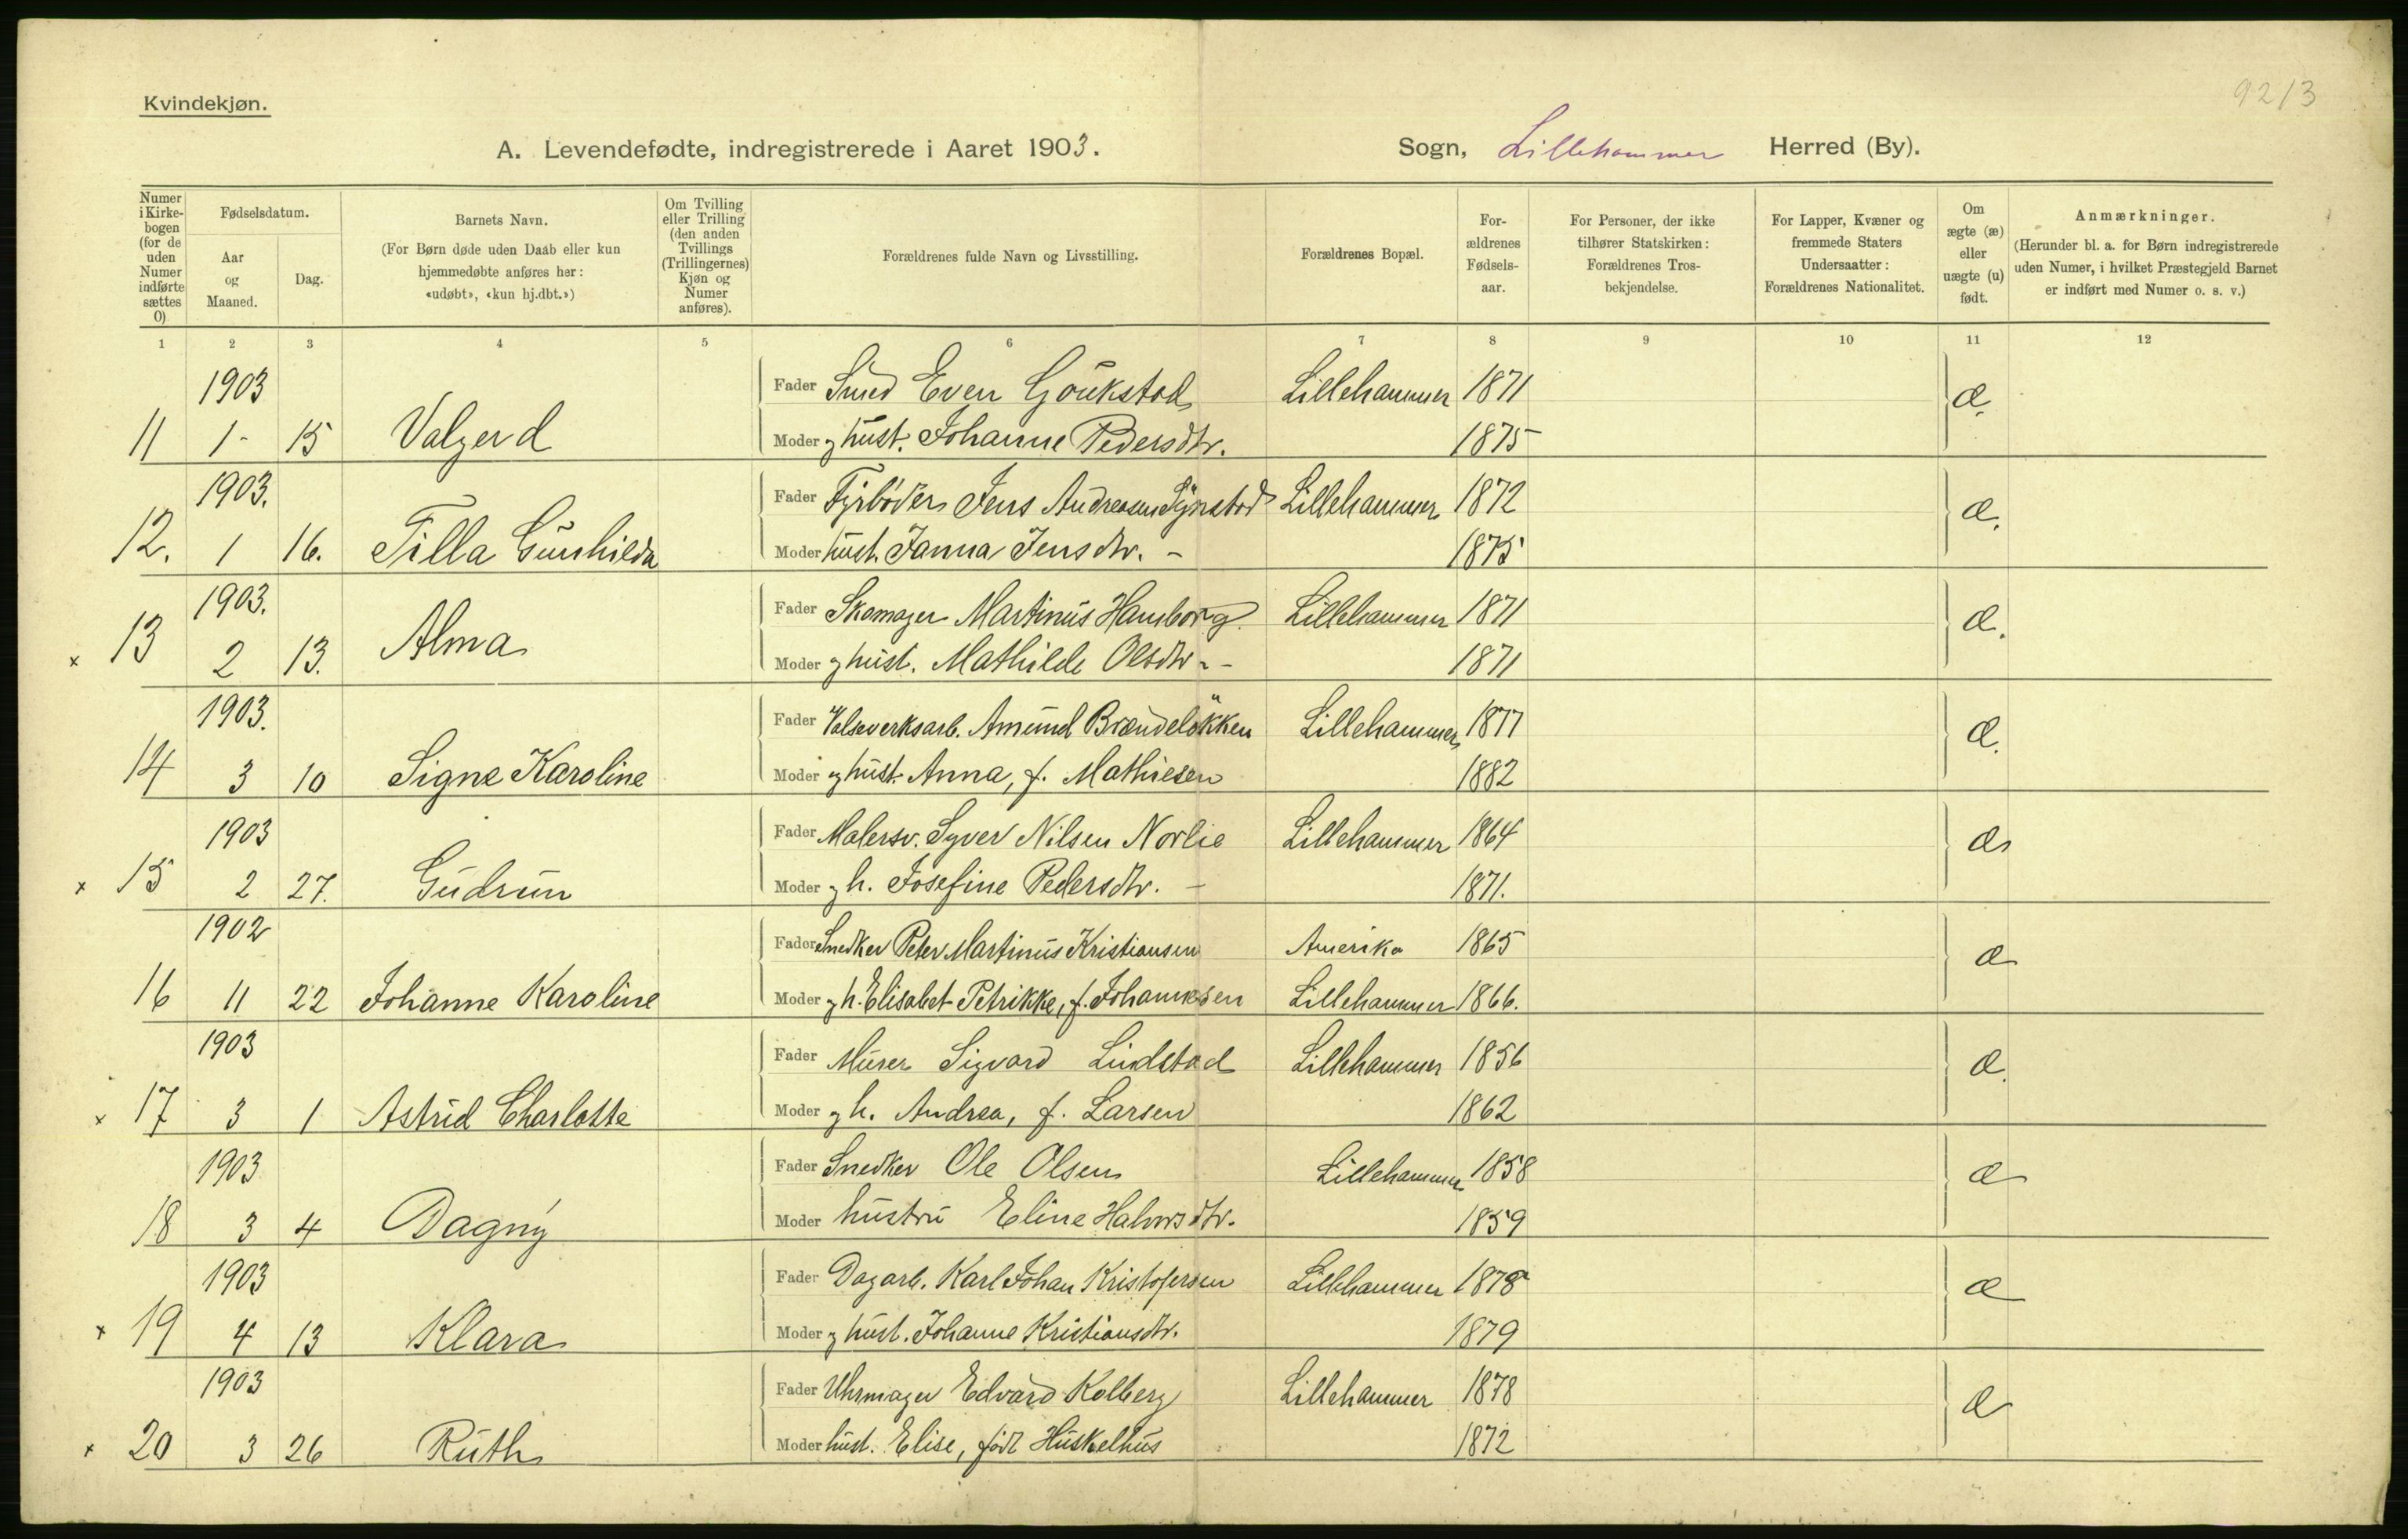 Kvindekjøn.
9213
A. Levendefødte, indregistrerede i Aaret 1903. Sogn, Lillehammer Herred (By).
Numer i Kirkebogen (for de uden Numer indførte sættes 0) Fødselsdatum. Aar og Maaned. Dag. Barnets Navn. (For Børn døde uden Daab eller kun hjemmedøbte anføres her: «udøbt», «kun hj.dbt.») Om Tvilling eller Trilling (den anden Tvillings (Trillingernes) Kjøn og Numer anføres). Forældrenes fulde Navn og Livsstilling. Forældrenes Bopæl. Forældrenes Fødselsaar. For Personer, der ikke tilhører Statskirken: Forældrenes Trosbekjendelse. For Lapper, Kvæner og fremmede Staters Undersaatter: Forældrenes Nationalitet. Om ægte (æ) eller uægte (u) født. Anmærkninger. (Herunder bl. a. for Børn indregistrerede uden Numer, i hvilket Præstegjeld Barnet er indført med Numer o. s. v.)
1 2 3 4 5 6 7 8 9 10 11 12
1903 Fader Smed Even Gåukstad Lillehammer 1871 æ.
11 1- 15 Valgerd Moder g hust. Johanne Pedersdtr. 1875
1903. Fader Fyrbøder Jens Andreasen Lillehammer 1872 æ.
12. 1 16. Tilla Gunhilda Moder hust. Janna Jensdtr. - 1875
1903. Fader Skomager Martinus Hamborg Lillehammer 1871 æ.
x 13 2 13. Alma Moder g hust. Mathilde Olsdtr. - 1871
1903. Fader Valseverksarb. Amund Brændeløkken Lillehammer 1877 æ.
14 3 10 Signe Karoline Moder g hust. Anna, f. Mathiesen 1882
1903 Fader Malersv. Syver Nilsen Norlie Lillehammer 1864 æ
x 15 2 27. Gudrun Moder g h. Josefine Pedersdtr. - 1871.
1902 Fader Snedker Peter Martinus Kristiansen Amerika 1865 æ
16 11 22 Johanne Karoline Moder g h. Elisabet Petrikke, f. Johannesen Lillehammer 1866.
1903 Fader Murer Sigvard Lindstad Lillehammer 1856 æ.
x 17 3 1 Astrid Charlotte Moder g h. Andrea, f. Larsen 1862
1903 Fader Snedker Ole Olsen Lillehammer 1858 æ
18 3 4 Dagny Moder hustru Eline Halvorsdtr. 1859
1903 Fader Dagarb. Karl Johan Kristofersen Lillehammer 1878 æ
x 19 4 13 Klara Moder g hust. Johanne Kristiansdtr. 1879
1903 Fader Uhrmager Edvard Kolberg Lillehammer 1878 æ
x 20 3 26 Ruth Moder hust. Elise, født Huskelhus 1872